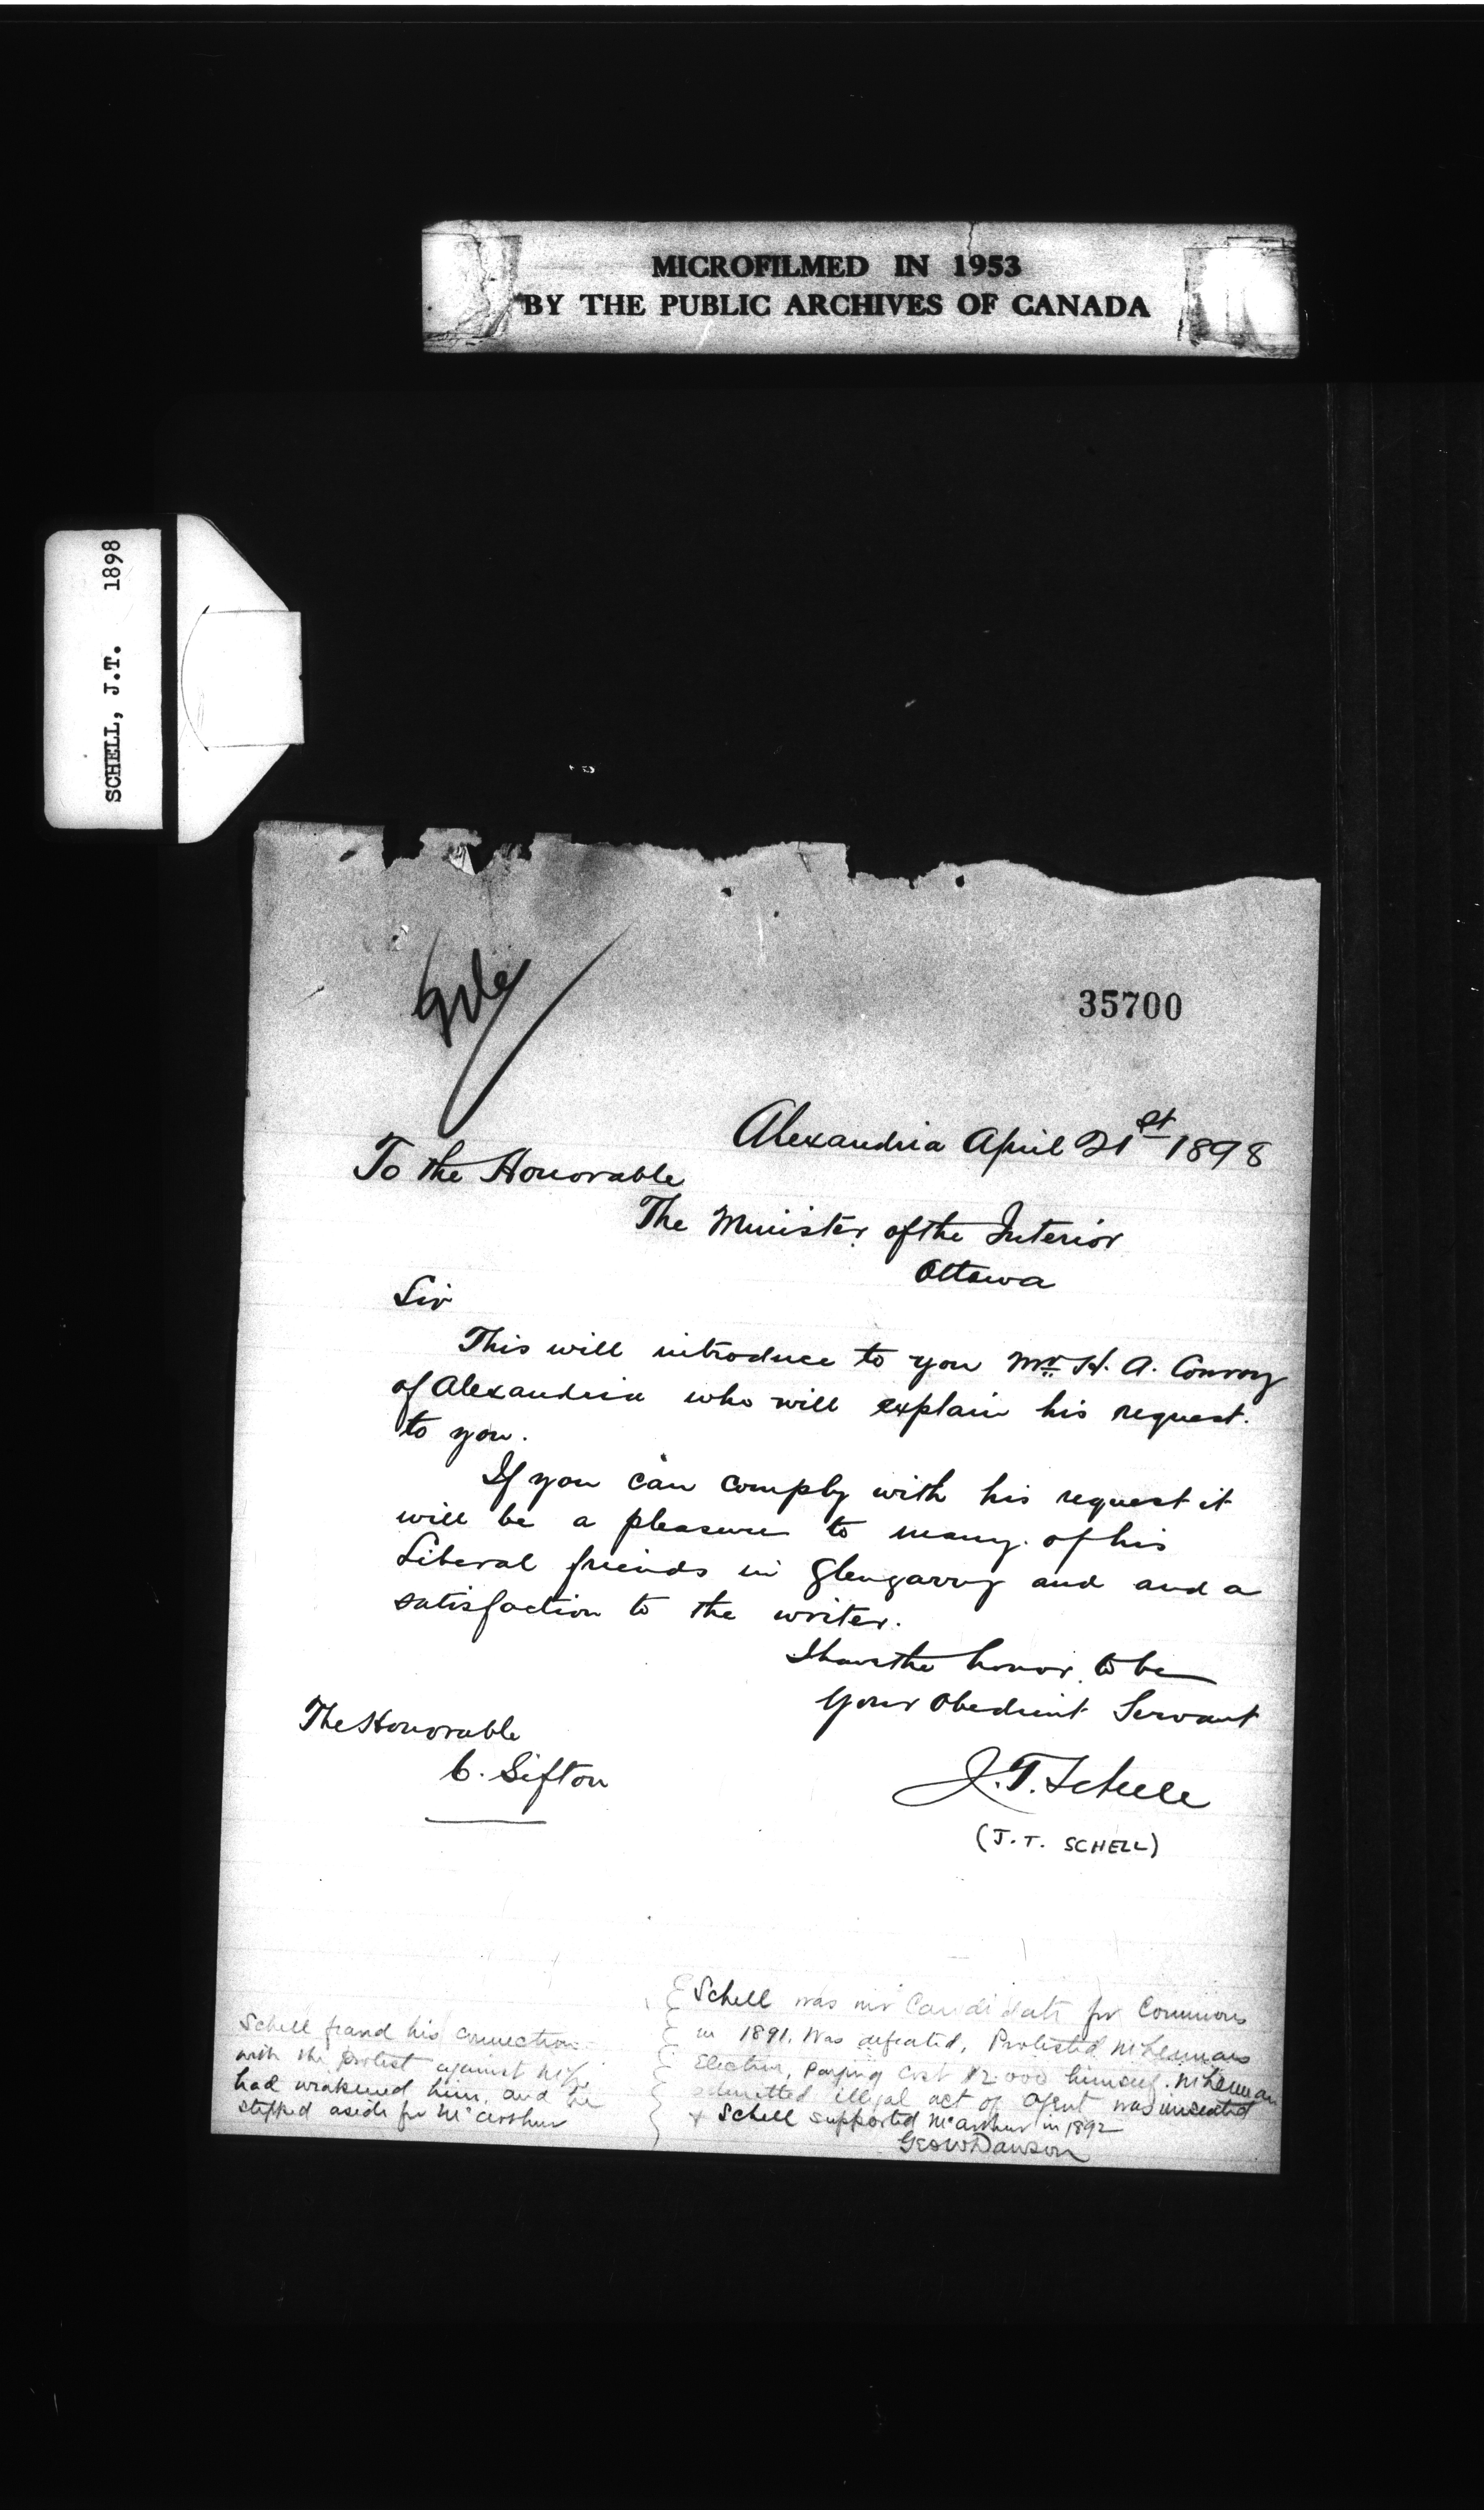 MICROFILMED IN 1953
BY THE PUBLIC ARCHIVES OF CANADA
SCHELL, J.T. 1898
35700
Alexandria April 21st 1898
To the Honorable
The Minister of the Interior
Ottawa
Sir
This will introduce to you Mr. H. A. Conroy
of Alexandria who will explain his request.
to you.
If you can comply with his request it
will be a pleasure to many of his
Liberal friends in Glengarry and and a
satisfaction to the writer.
I have the honor to be
Your Obedient Servant
The Honorable
C. Sifton
J. T. Schell
(J.T. SCHELL)
Schell was our Candidate for Commons
in 1891. Was defeated, Protested McLennans
Election, paying cost $2000 himself. McLennan
admitted illegal act of agent was unseated
& Schell supported McArthur in 1892
Geo W Dawson
Schell found his connection
with the protest against
had weakened him, and he
stepped aside for McArthur